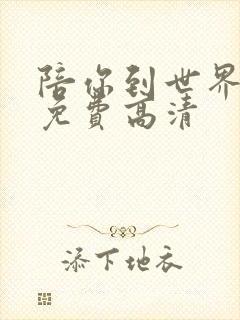 陪你到世界
免费高清
添下地衣